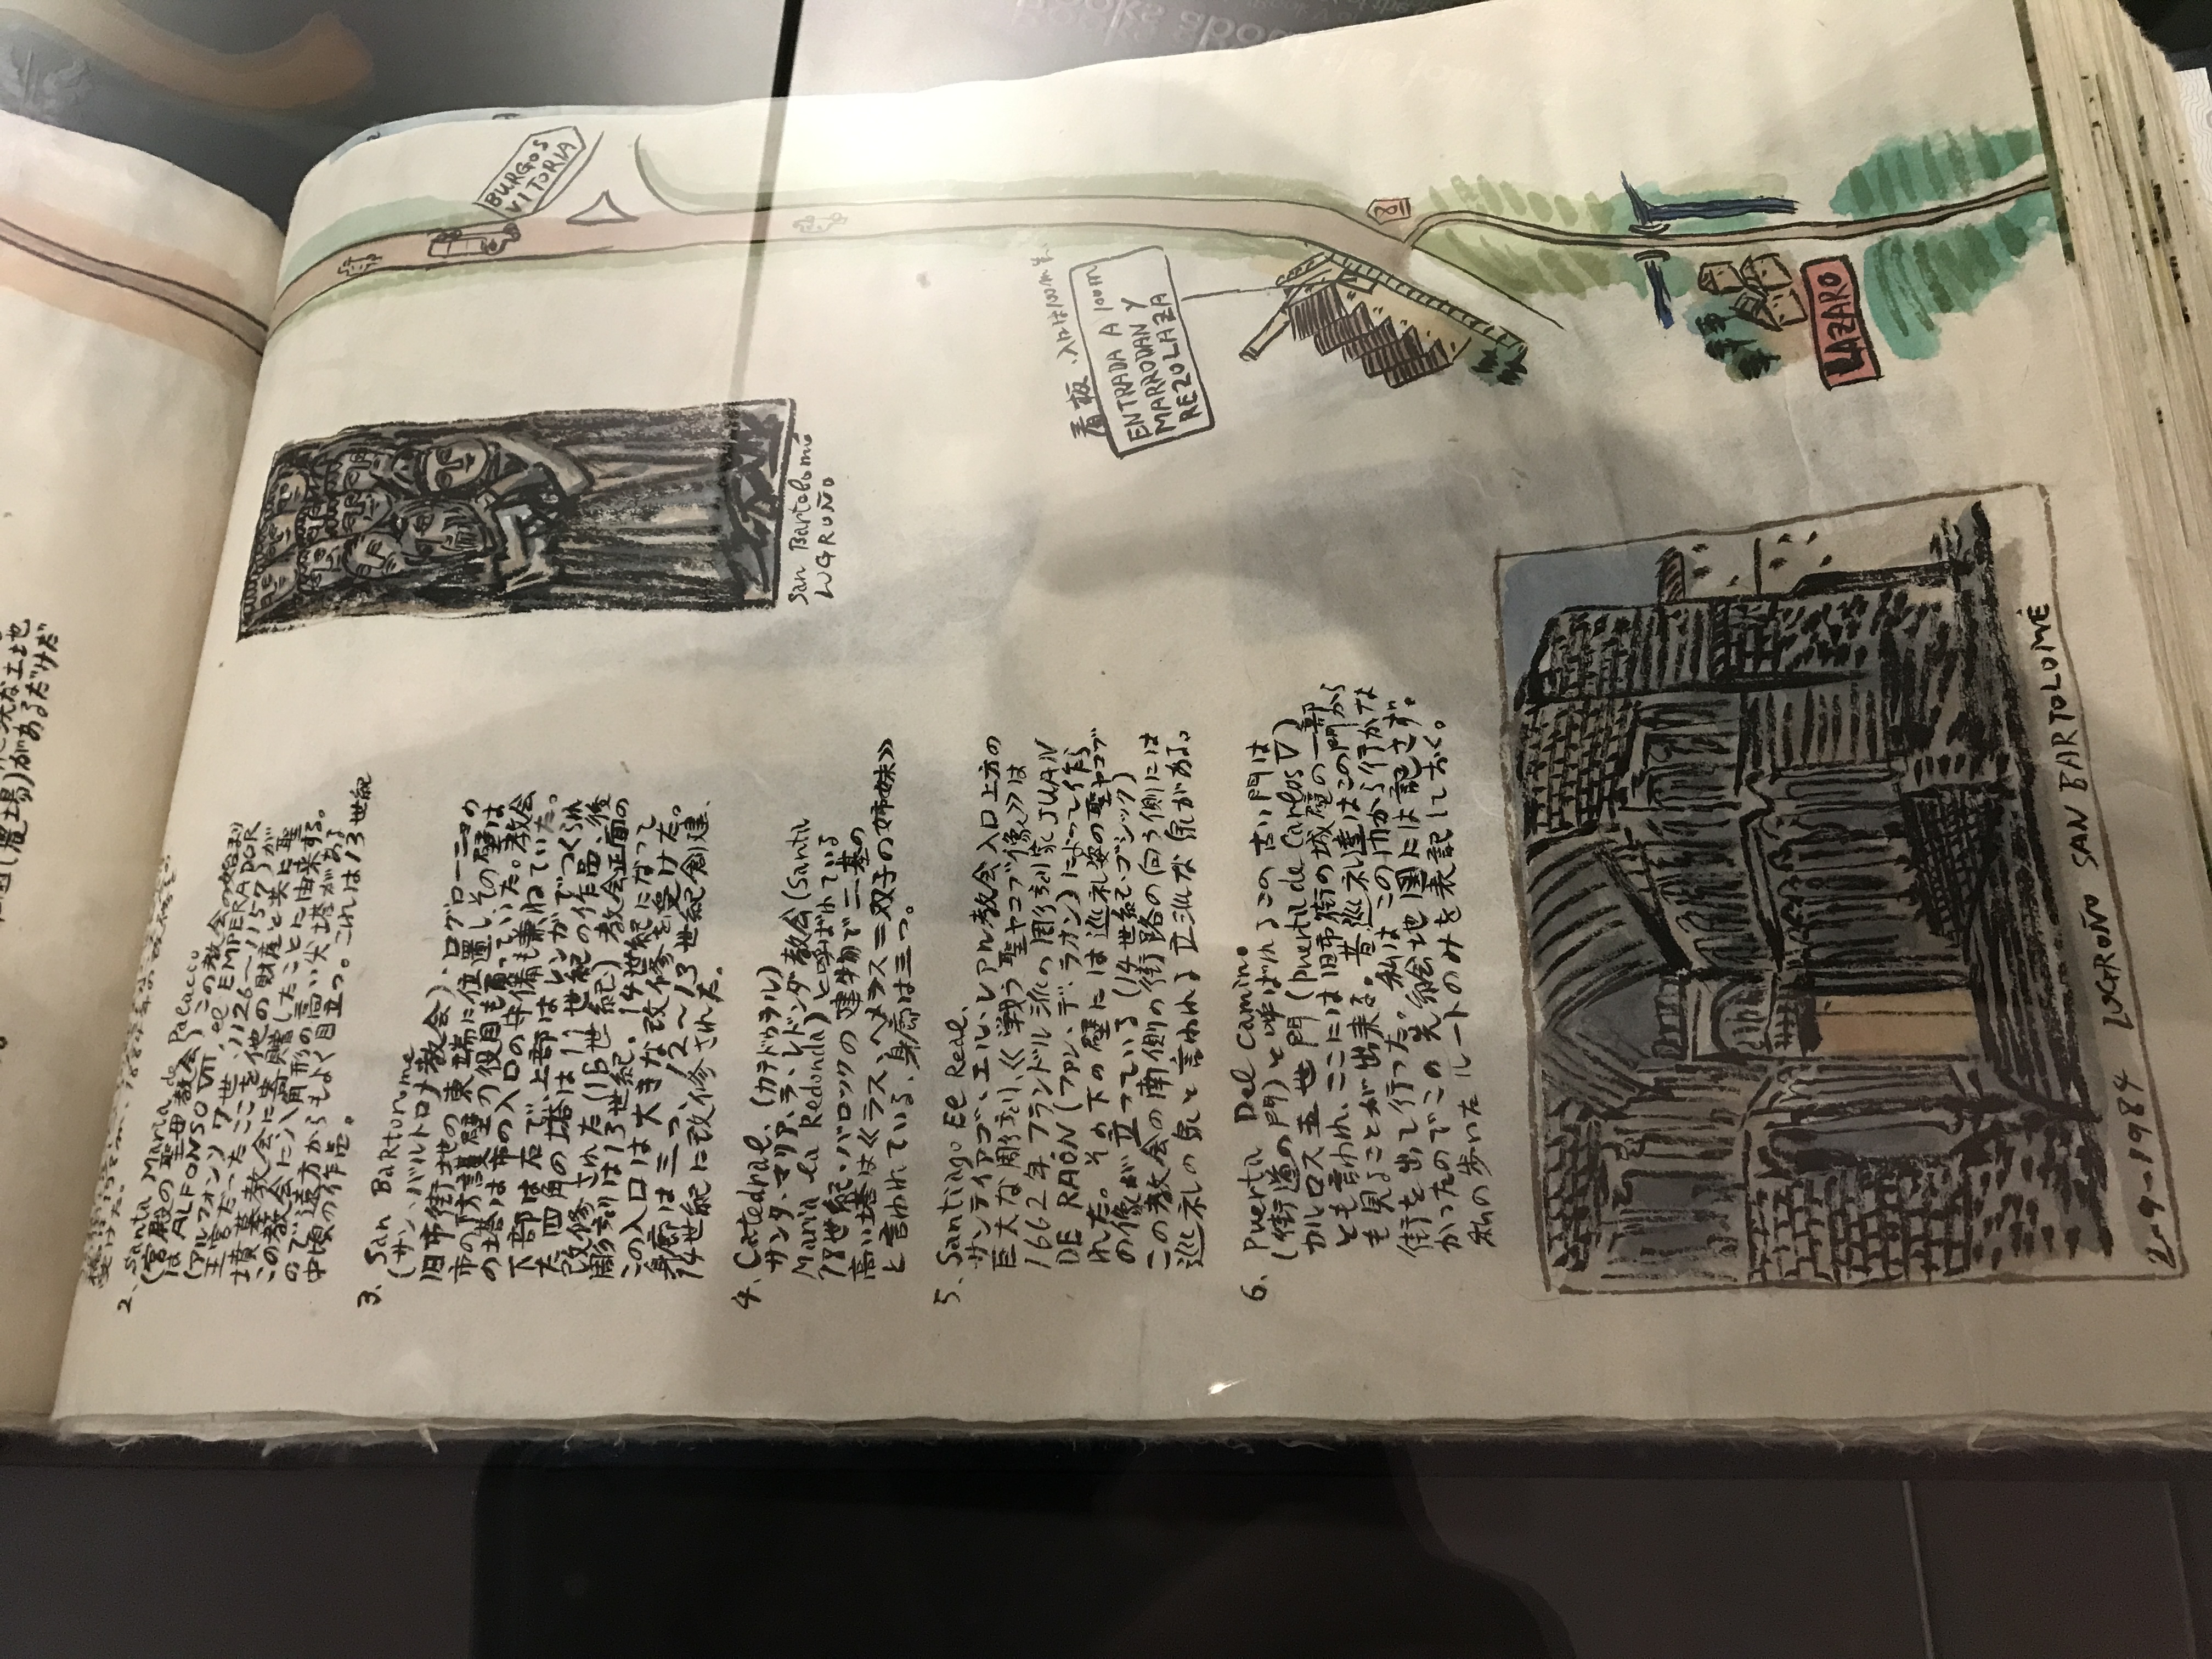 BURGOS
VITORIA
看板、入口は100m先
ENTRADA A 100m
MARRODAN Y
REZOLAZA
LAZARO
San Bartolomé
LOGROÑO
2. Santa Maria de Palacio
(宮殿の聖母教会)この教会の始まり
は ALFONSO VII, el EMPERADOR
(アルフォンソ7世、1126〜1157)が
王宮だったここを他の財産と共に聖
墳墓教会に寄贈したことに由来する。
この教会に八角形の高い尖塔がある
ので遠方からもよく目立つ。これは13世紀
中頃の作品。
3. San Bartorome
(サン、バルトロメ教会)、ログローニョの
旧市街地の東端に位置し、その壁は
市の防護壁の役目も負っていた。教会
の塔は市の入口の守備も兼ねていた。
下部は石で、上部はレンガでつくられ
た四角の塔は11世紀の作品、後
改修された(16世紀)教会正面の
彫刻は13世紀。14世紀になって
この入口は大きな改修を受けた。
身廊は三つ、12〜13世紀創建、
14世紀に改修された。
4. Catedral、(カテドゥラル)
サンタ、マリア、ラ、レドンダ教会(Santa
Maria la Redonda)と呼ばれている
18世紀・バロックの建物で二基の
高い塔は《ラス、ヘメラス=双子の姉妹》
と言われている、身廊は三つ。
5. Santiago El Real、
サンティアゴ、エル、レアル教会入口上方の
巨大な彫刻、《戦う聖ヤコブ像》は
1662年フランドル派の彫刻家JUAN
DE RAÓN(ファン、デ、ラオン)によって作ら
れた。その下の壁には巡礼姿の聖ヤコブ
の像が立っている(14世紀・ゴシック)
この教会の南側の街路の向う側には
巡礼の泉と言われる立派な泉がある。
6. Puerta Del Camino
(街道の門)と呼ばれるこの古い門は
カルロス五世門(Puerta de Carlos V)
とも言われ、ここには旧市街の城壁の一部
も見ることが出来る。昔巡礼達はこの門から
街を出て行った。私はこの市から行かな
かったのでこの先絵地図には記さず。
私の歩いたルートのみを表記しておく。
2-9-1984 LOGROÑO SAN BARTOLOMÉ